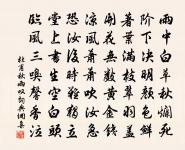 雨中百草秋爛死
階下決明顏色鮮
著葉滿枝翠羽蓋
開花無數黃金錢
涼風蕭蕭吹汝急
恐汝後時難獨立
堂上書生空白頭
臨風三嗅馨香泣
杜甫秋雨嘆